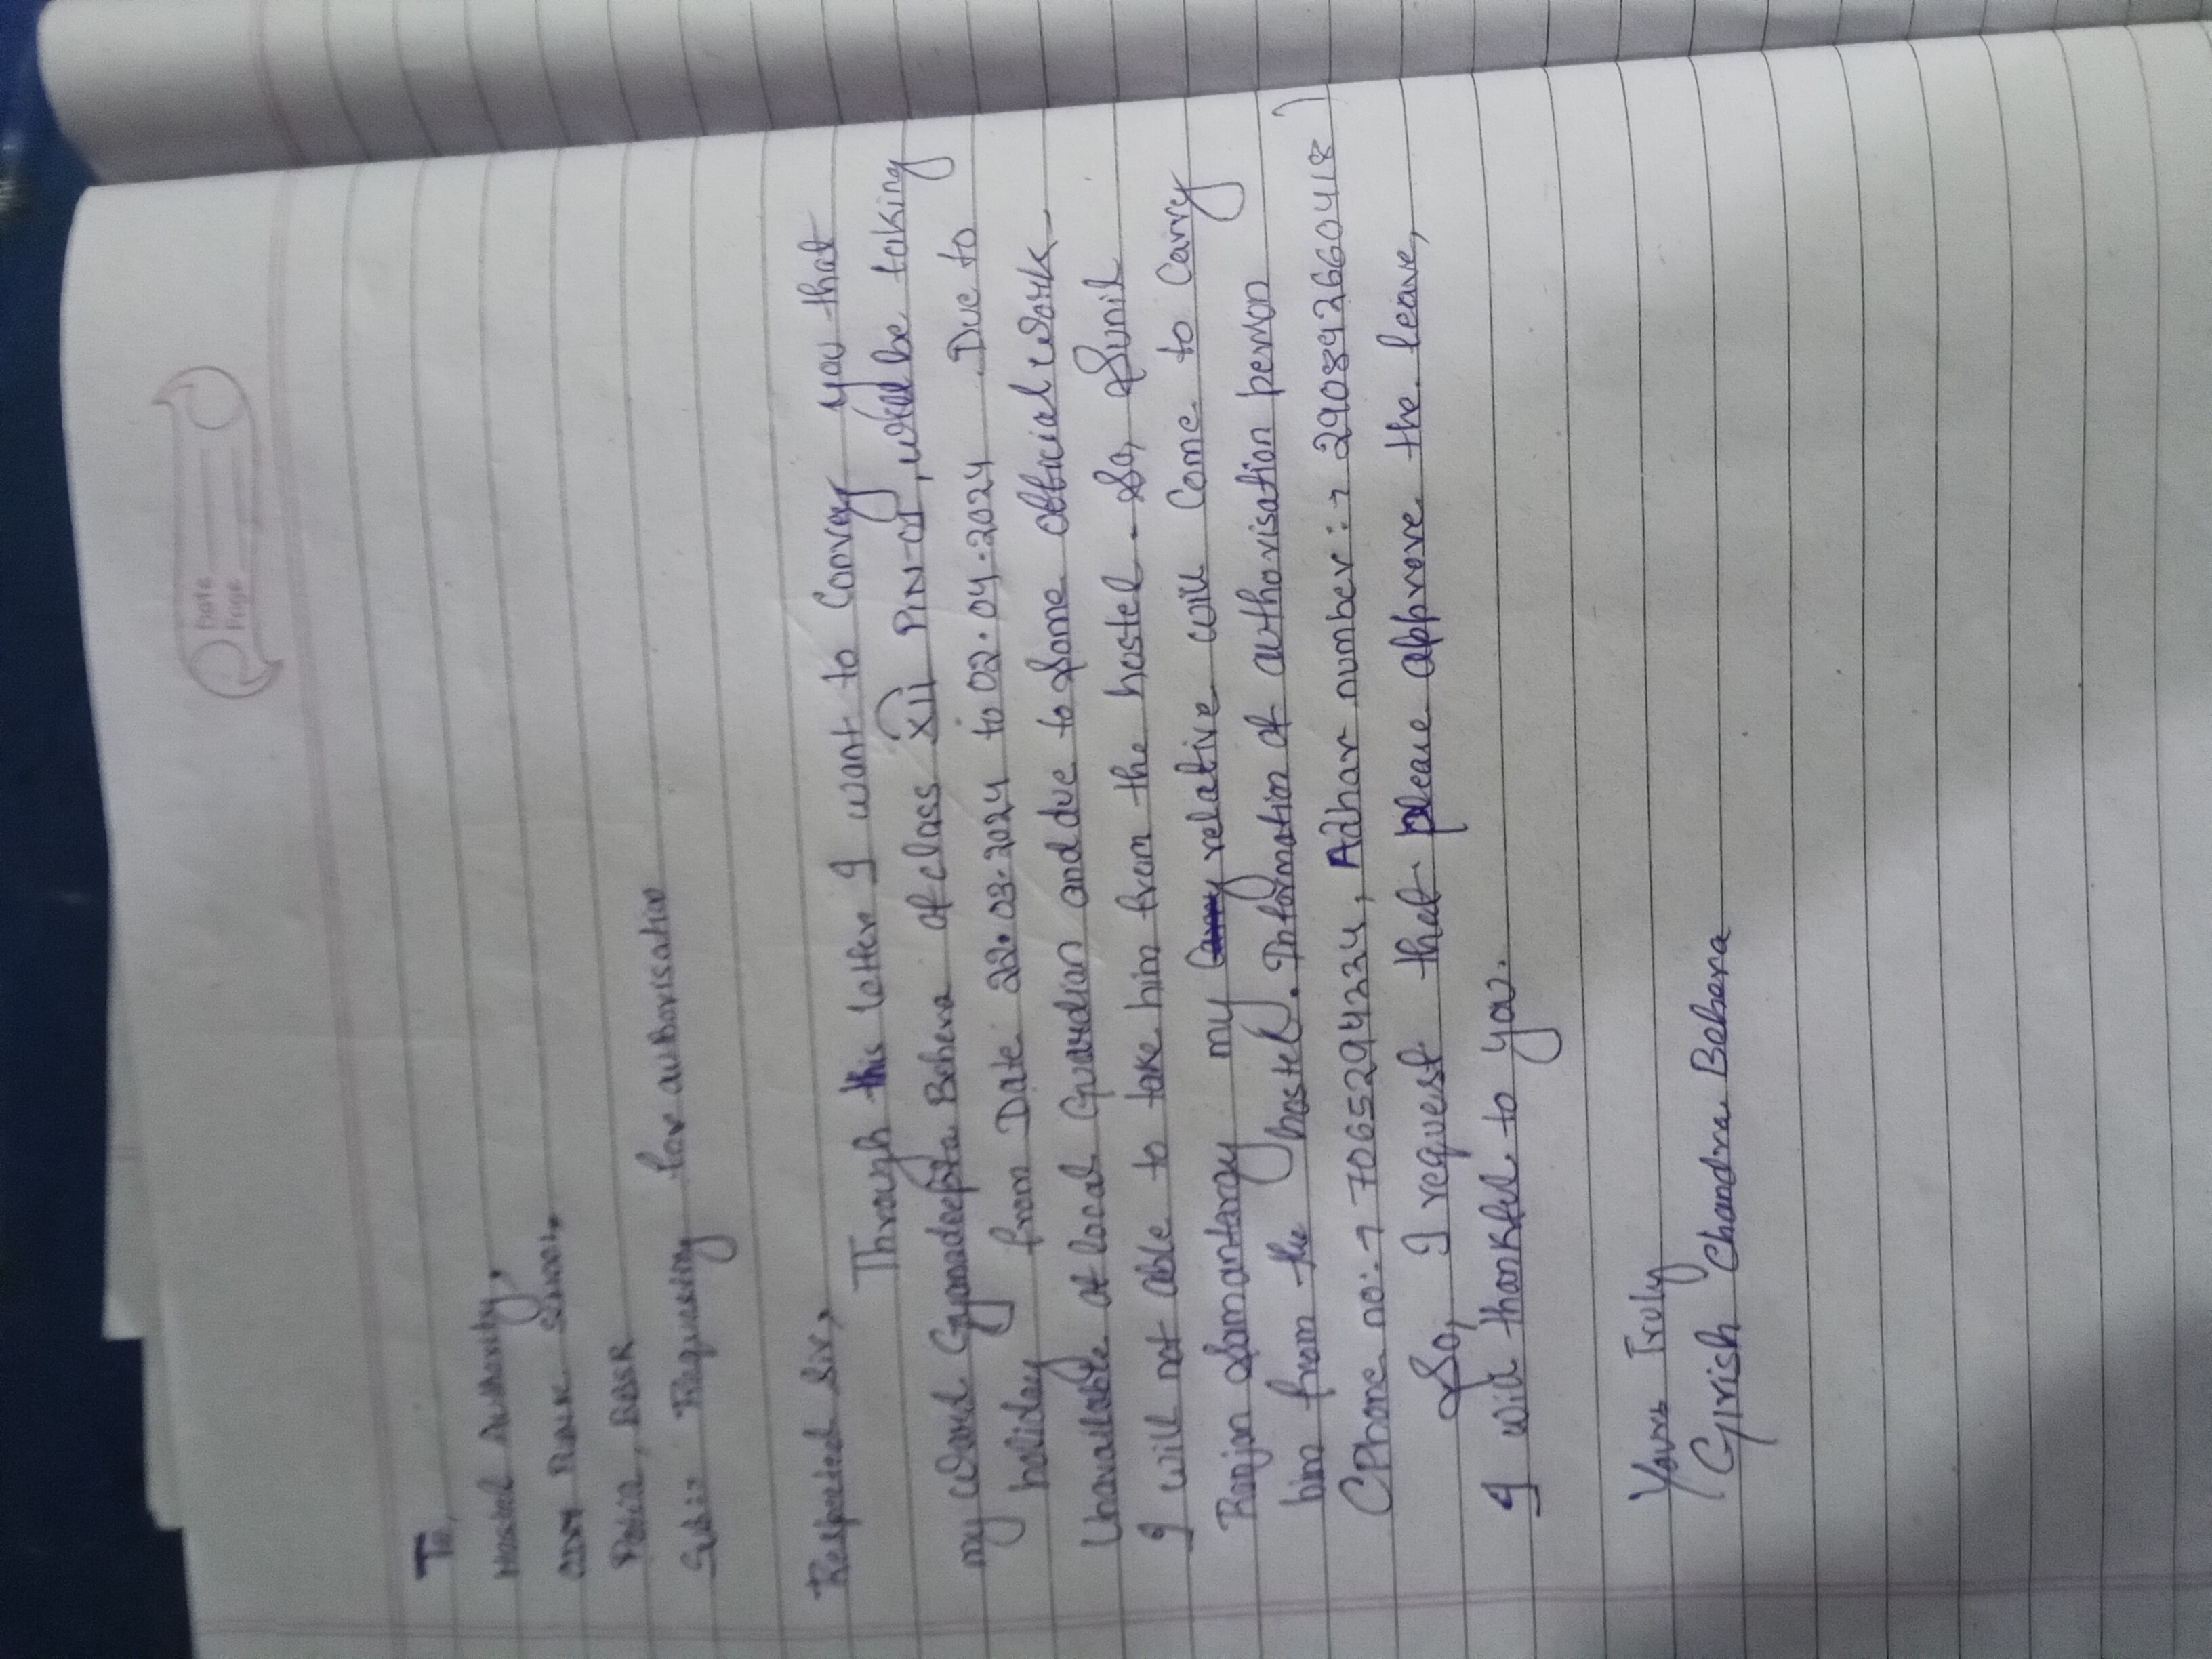 Date
Page
To,
Hostel Authority,
ODM Public School,
Patia, BBSR
Sub:- Requesting for authorisation
Respected Sir,
Through this letter I want to convey you that
my ward Gyanadeepta Behera of class XII PIN-01, will be taking
holiday from Date 22.03.2024 to 02.04.2024. Due to
Unavailable of local Guardian and due to some official work
I will not able to take him from the hostel. So, Sunil
Ranjan Samantaray my relative will come to carry
him from the hostel. Information of authorisation person
(Phone no:→ 7065294234, Adhar number:→ 290892660418)
So, I request that please approve the leave,
I will thankful to you.
Yours Truly
Girish Chandra Behera